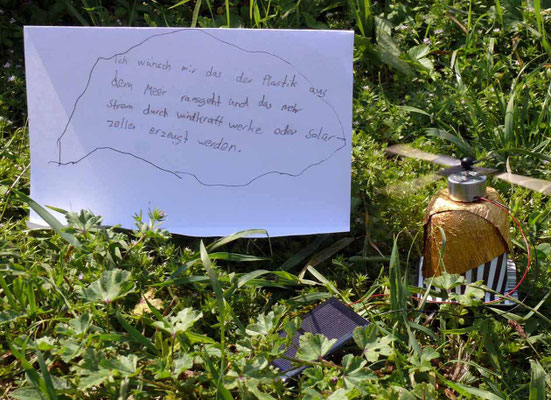 Ich wünsch mir das der Plastik aus
dem Meer rausgeht und das mehr
Strom durch windkraft werke oder solar-
zellen erzeugt werden.